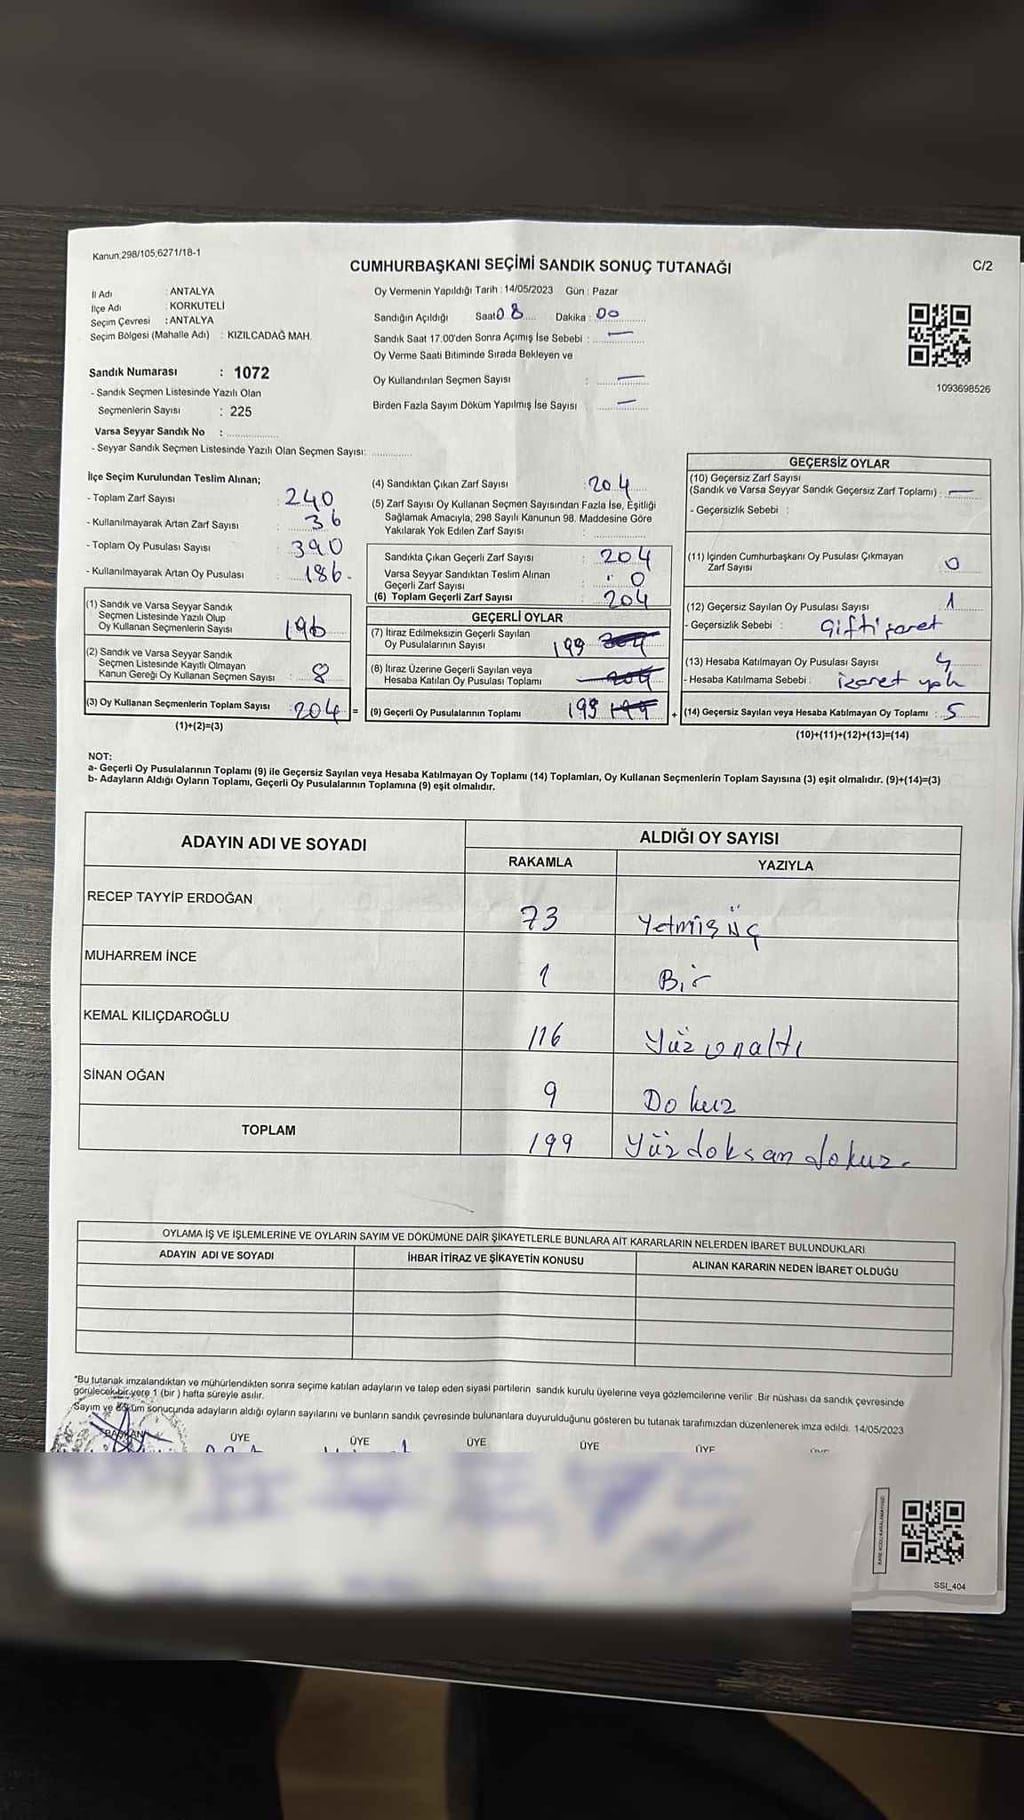 Kanun;298/105;6271/18-1
CUMHURBAŞKANI SEÇİMİ SANDIK SONUÇ TUTANAĞI
C/2
İl Adı : ANTALYA
İlçe Adı : KORKUTELİ
Seçim Çevresi : ANTALYA
Seçim Bölgesi (Mahalle Adı) : KIZILCADAĞ MAH.
Sandık Numarası : 1072
- Sandık Seçmen Listesinde Yazılı Olan
Seçmenlerin Sayısı : 225
Varsa Seyyar Sandık No :
- Seyyar Sandık Seçmen Listesinde Yazılı Olan Seçmen Sayısı:
Oy Vermenin Yapıldığı Tarih : 14/05/2023 Gün : Pazar
Sandığın Açıldığı Saat 08 Dakika : 00
Sandık Saat 17.00'den Sonra Açılmış İse Sebebi : —
Oy Verme Saati Bitiminde Sırada Bekleyen ve
Oy Kullandırılan Seçmen Sayısı : —
Birden Fazla Sayım Döküm Yapılmış İse Sayısı —
1093698526
İlçe Seçim Kurulundan Teslim Alınan;
- Toplam Zarf Sayısı 240
- Kullanılmayarak Artan Zarf Sayısı 36
- Toplam Oy Pusulası Sayısı 390
- Kullanılmayarak Artan Oy Pusulası 186-
(1) Sandık ve Varsa Seyyar Sandık
Seçmen Listesinde Yazılı Olup
Oy Kullanan Seçmenlerin Sayısı 196
(2) Sandık ve Varsa Seyyar Sandık
Seçmen Listesinde Kayıtlı Olmayan
Kanun Gereği Oy Kullanan Seçmen Sayısı : 8
(3) Oy Kullanan Seçmenlerin Toplam Sayısı 204 =
(1)+(2)=(3)
(4) Sandıktan Çıkan Zarf Sayısı : 204
(5) Zarf Sayısı Oy Kullanan Seçmen Sayısından Fazla İse, Eşitliği
Sağlamak Amacıyla, 298 Sayılı Kanunun 98. Maddesine Göre
Yakılarak Yok Edilen Zarf Sayısı :
Sandıkta Çıkan Geçerli Zarf Sayısı : 204
Varsa Seyyar Sandıktan Teslim Alınan
Geçerli Zarf Sayısı : 0
(6) Toplam Geçerli Zarf Sayısı 204
GEÇERLİ OYLAR
(7) İtiraz Edilmeksizin Geçerli Sayılan
Oy Pusulalarının Sayısı 199 204
(8) İtiraz Üzerine Geçerli Sayılan veya
Hesaba Katılan Oy Pusulası Toplamı 204
(9) Geçerli Oy Pusulalarının Toplamı 199 199 +
GEÇERSİZ OYLAR
(10) Geçersiz Zarf Sayısı
(Sandık ve Varsa Seyyar Sandık Geçersiz Zarf Toplamı) : —
- Geçersizlik Sebebi :
(11) İçinden Cumhurbaşkanı Oy Pusulası Çıkmayan
Zarf Sayısı 0
(12) Geçersiz Sayılan Oy Pusulası Sayısı 1
- Geçersizlik Sebebi : Çift işaret
(13) Hesaba Katılmayan Oy Pusulası Sayısı 4
- Hesaba Katılmama Sebebi : işaret yok
(14) Geçersiz Sayılan veya Hesaba Katılmayan Oy Toplamı : 5
(10)+(11)+(12)+(13)=(14)
NOT:
a- Geçerli Oy Pusulalarının Toplamı (9) ile Geçersiz Sayılan veya Hesaba Katılmayan Oy Toplamı (14) Toplamları, Oy Kullanan Seçmenlerin Toplam Sayısına (3) eşit olmalıdır. (9)+(14)=(3)
b- Adayların Aldığı Oyların Toplamı, Geçerli Oy Pusulalarının Toplamına (9) eşit olmalıdır.
ADAYIN ADI VE SOYADI
ALDIĞI OY SAYISI
RAKAMLA YAZIYLA
RECEP TAYYİP ERDOĞAN 73 Yetmiş üç
MUHARREM İNCE 1 Bir
KEMAL KILIÇDAROĞLU 116 Yüz onaltı
SİNAN OĞAN 9 Dokuz
TOPLAM 199 Yüzdoksan dokuz.
OYLAMA İŞ VE İŞLEMLERİNE VE OYLARIN SAYIM VE DÖKÜMÜNE DAİR ŞİKAYETLERLE BUNLARA AİT KARARLARIN NELERDEN İBARET BULUNDUKLARI
ADAYIN ADI VE SOYADI İHBAR İTİRAZ VE ŞİKAYETİN KONUSU ALINAN KARARIN NEDEN İBARET OLDUĞU
*Bu tutanak imzalandıktan ve mühürlendikten sonra seçime katılan adayların ve talep eden siyasi partilerin sandık kurulu üyelerine veya gözlemcilerine verilir. Bir nüshası da sandık çevresinde
görülecek bir yere 1 (bir ) hafta süreyle asılır.
Sayım ve döküm sonucunda adayların aldığı oyların sayılarını ve bunların sandık çevresinde bulunanlara duyurulduğunu gösteren bu tutanak tarafımızdan düzenlenerek imza edildi. 14/05/2023
BAŞKAN ÜYE ÜYE ÜYE ÜYE ÜYE ÜYE
SSI_404